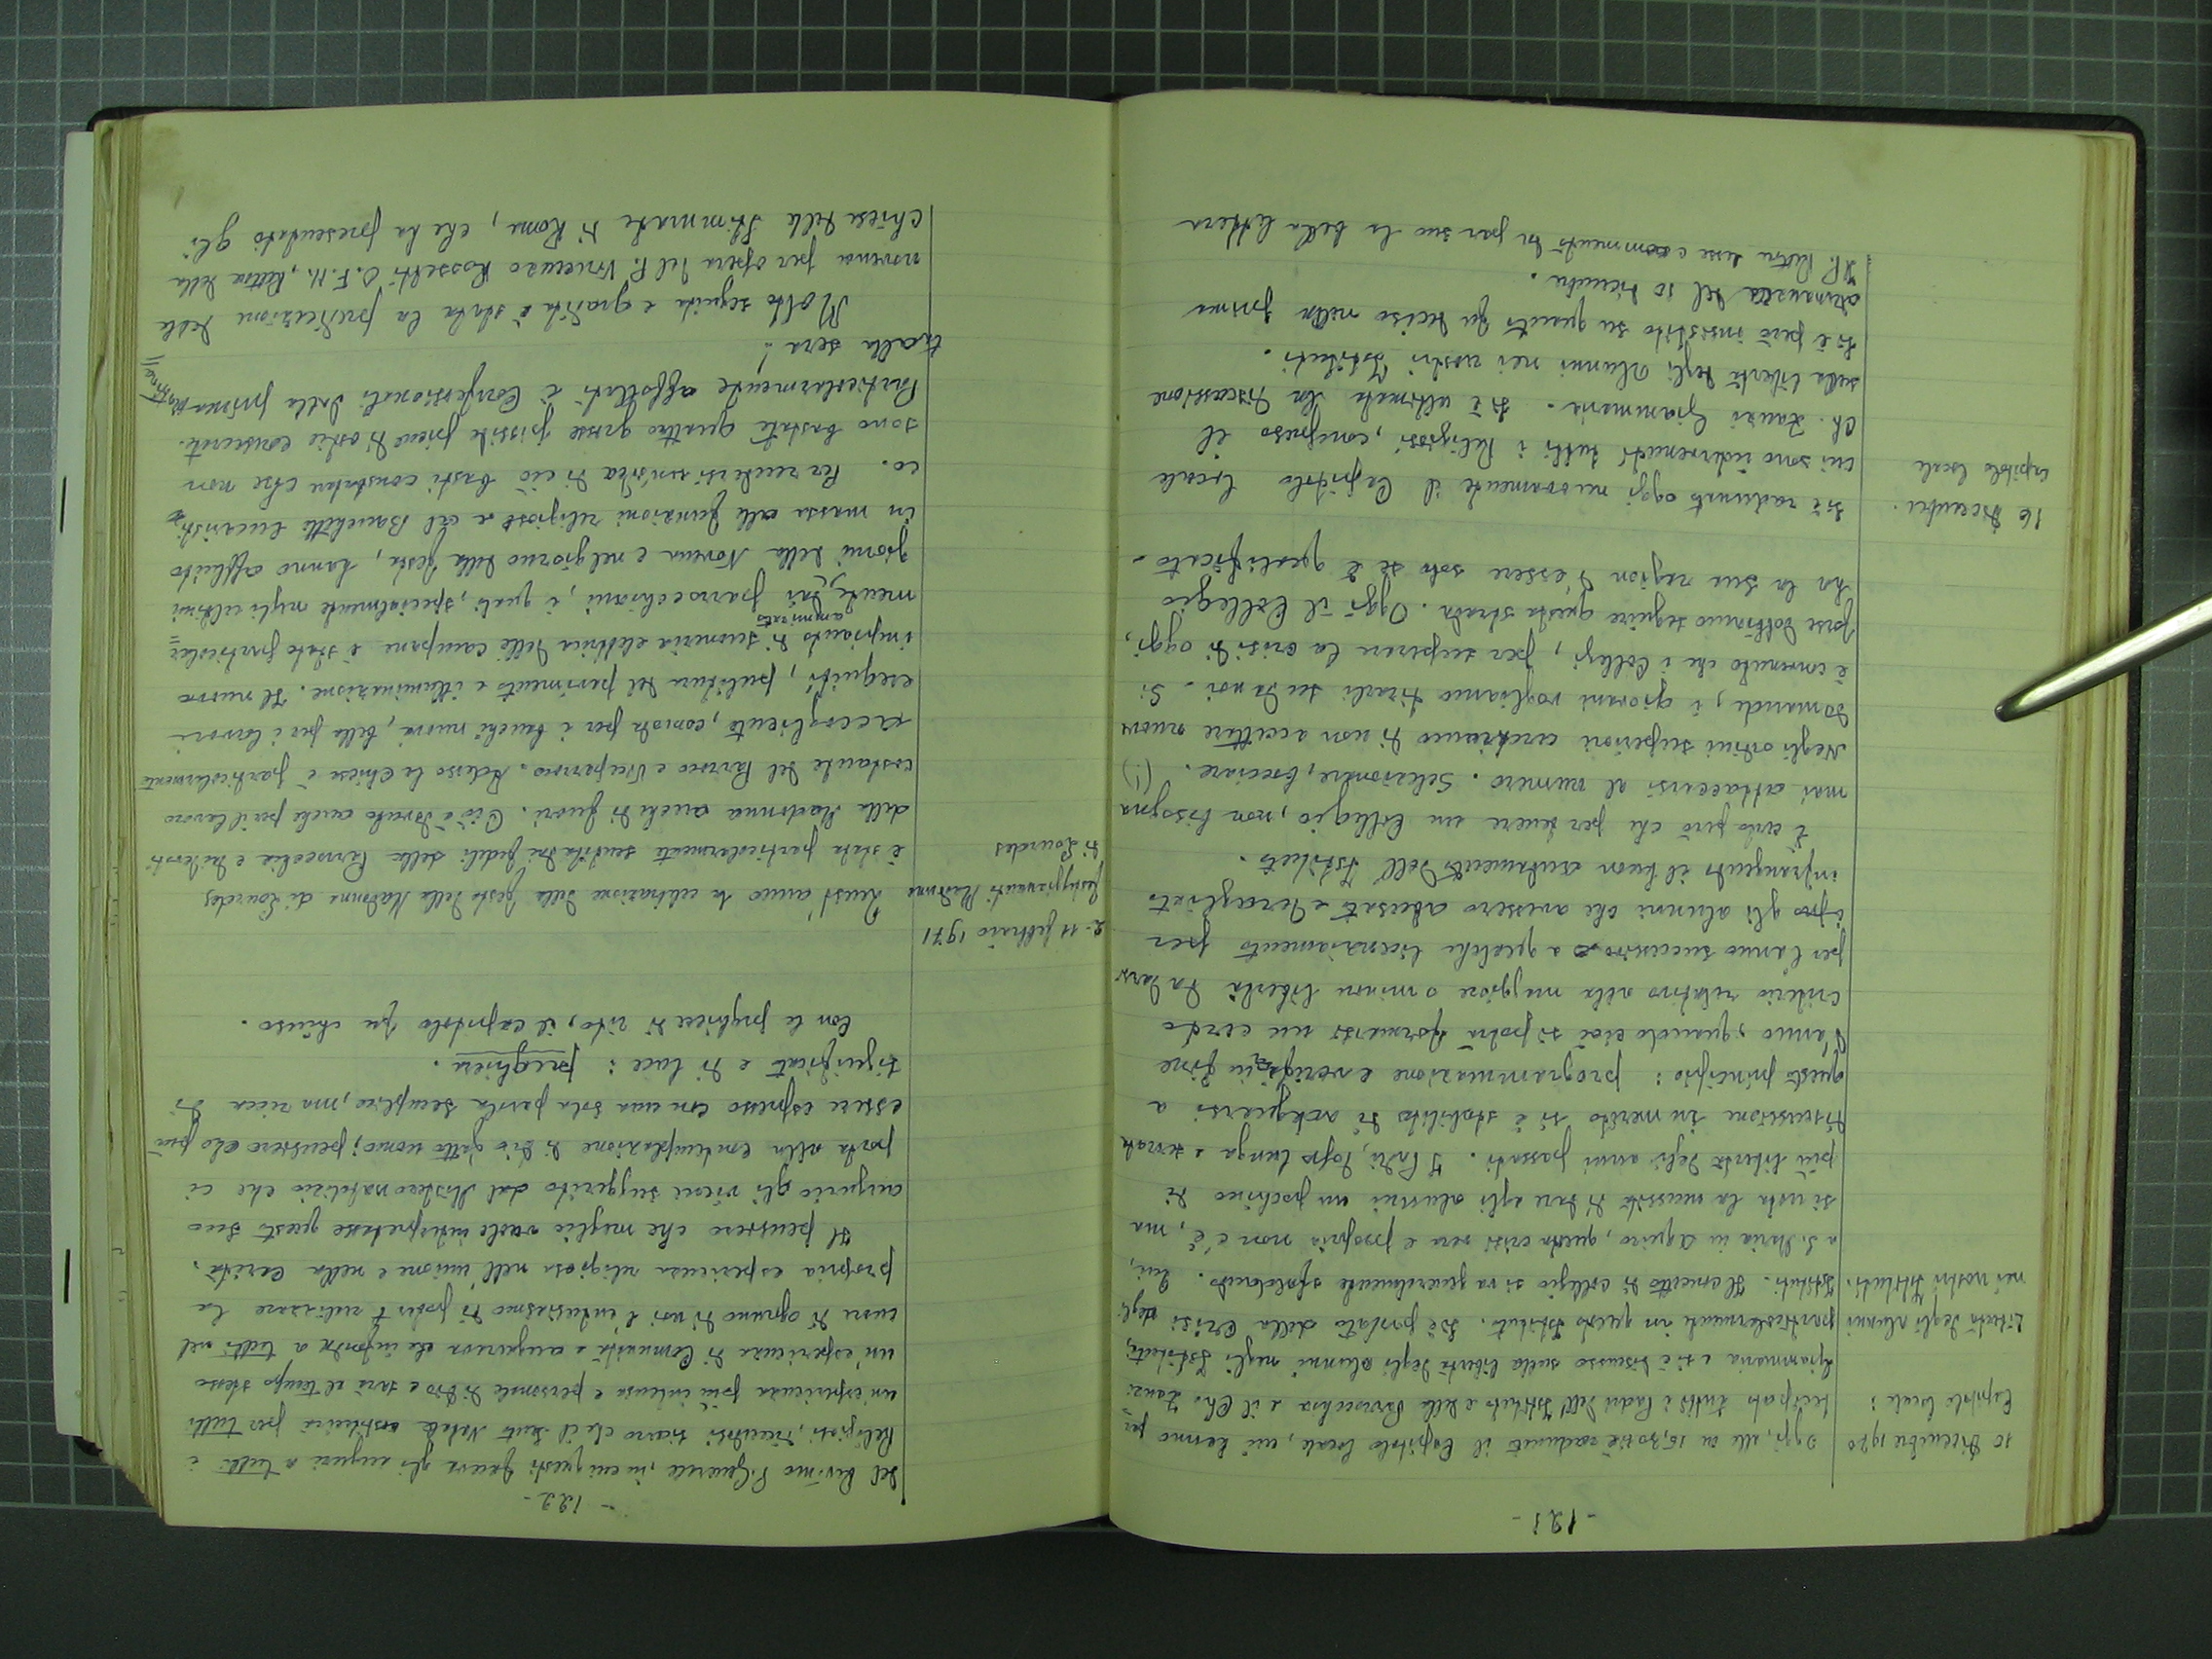 - 121 -
10 Dicembre 1970
Capitolo locale:
Libertà degli alunni
nei nostri Istituti.
Oggi, alle ore 15,30 si è radunato il Capitolo locale, cui hanno par
tecipato tutti i Padri dell'Istituto e della Parrocchia e il Ch. Zauzi
Giammaria e si è discusso sulla libertà degli alunni negli Istituti,
particolarmente in questo Istituto. Si è parlato della crisi degli
Istituti. Il concetto di collegio si va generalmente sfaldando. Qui,
a S. Maria in Aquiro, questa crisi vera e propria non c'è, ma,
si nota la necessità di dare agli alunni un pochino di
più libertà degli anni passati. I Padri, dopo lunga e serrata
discussione in merito si è stabilito di adeguarsi a
questo principio: programmazione e verifica in fine
d'anno, quando cioè si potrà formarsi un certo
criterio relativo alla maggiore o minore libertà da darsi
per l'anno successivo o a qualche licenziamento per
gli alunni che avessero abusato e
infrangendo il buon andamento dell'Istituto.
È certo però che per tenere un Collegio, non bisogna
mai attaccarsi al numero. Selezionare, bocciare. (!)
Negli ordini superiori cerchiamo di non accettare nuove
domande, i giovani vogliamo tirarli su da noi. Si
è convenuto che i Collegi, per superare la crisi di oggi,
forse dobbiamo seguire questa strada. Oggi il Collegio
ha la sua ragion d'essere solo se è qualificato.
16 Dicembre.
Capitolo locale
Si è radunato oggi nuovamente il Capitolo locale
cui sono intervenuti tutti i Religiosi, compreso il
Ch. Zauzi Giammaria. Si è ultimata la discussione
sulla libertà degli alunni nei nostri Istituti.
Si è però insistito su quanto fu deciso nella prima
adunanza del 10 dicembre.
Il P. Rettore lesse e commentò la bella lettera
- 122 -
del Rev.mo P. Generale, in cui questi faceva gli auguri a tutti i
Religiosi, dicendosi sicuro che il Santo Natale costituirà per tutti
un'esperienza più intensa e personale di Dio e sarà al tempo stesso
un'esperienza di Comunità e augurava che infonda a tutti nel
cuore di ognuno di noi l'entusiasmo di poter realizzare la
propria esperienza religiosa nell'unione e nella carità.
Il pensiero che meglio vuole interpretare questo suo
augurio gli viene suggerito dal Mistero natalizio che ci
porta alla contemplazione di Dio fatto uomo; pensiero che può
essere espresso con una sola parola semplice, ma ricca di
significato e di luce: preghiera.
Con le preghiere di rito, il capitolo fu chiuso.
2-11 febbraio 1971
festeggiamenti Madonna
di Lourdes
Quest'anno la celebrazione della festa della Madonna di Lourdes
è stata particolarmente sentita dai fedeli della Parrocchia e dai devoti
della Madonna anche di fuori. Ciò è dovuto anche per il lavoro
costante del Parroco e Viceparroco. Adesso la Chiesa è particolarmente
accogliente, comoda per i banchi nuovi, bella per i lavori
eseguiti, pulitura del pavimento e illuminazione. Il nuovo
impianto di suoneria elettrica delle campane è stato particolar=
mente ammirato dai parrocchiani, i quali, specialmente negli ultimi
giorni della Novena e nel giorno della festa, hanno affluito
in massa alle funzioni religiose e al Banchetto Eucaristi
co. Per rendersi un'idea di ciò basti constatare che non
sono bastate quattro grosse pissidi piene di ostie consacrate.
Particolarmente affollati i Confessionali dalla prima mattina
alla sera!
Molto seguita e gradita è stata la predicazione della
novena per opera del P. Vincenzo Rossetti O.F.M., Rettore della
Chiesa delle Stimmate di Roma, che ha presentato gli